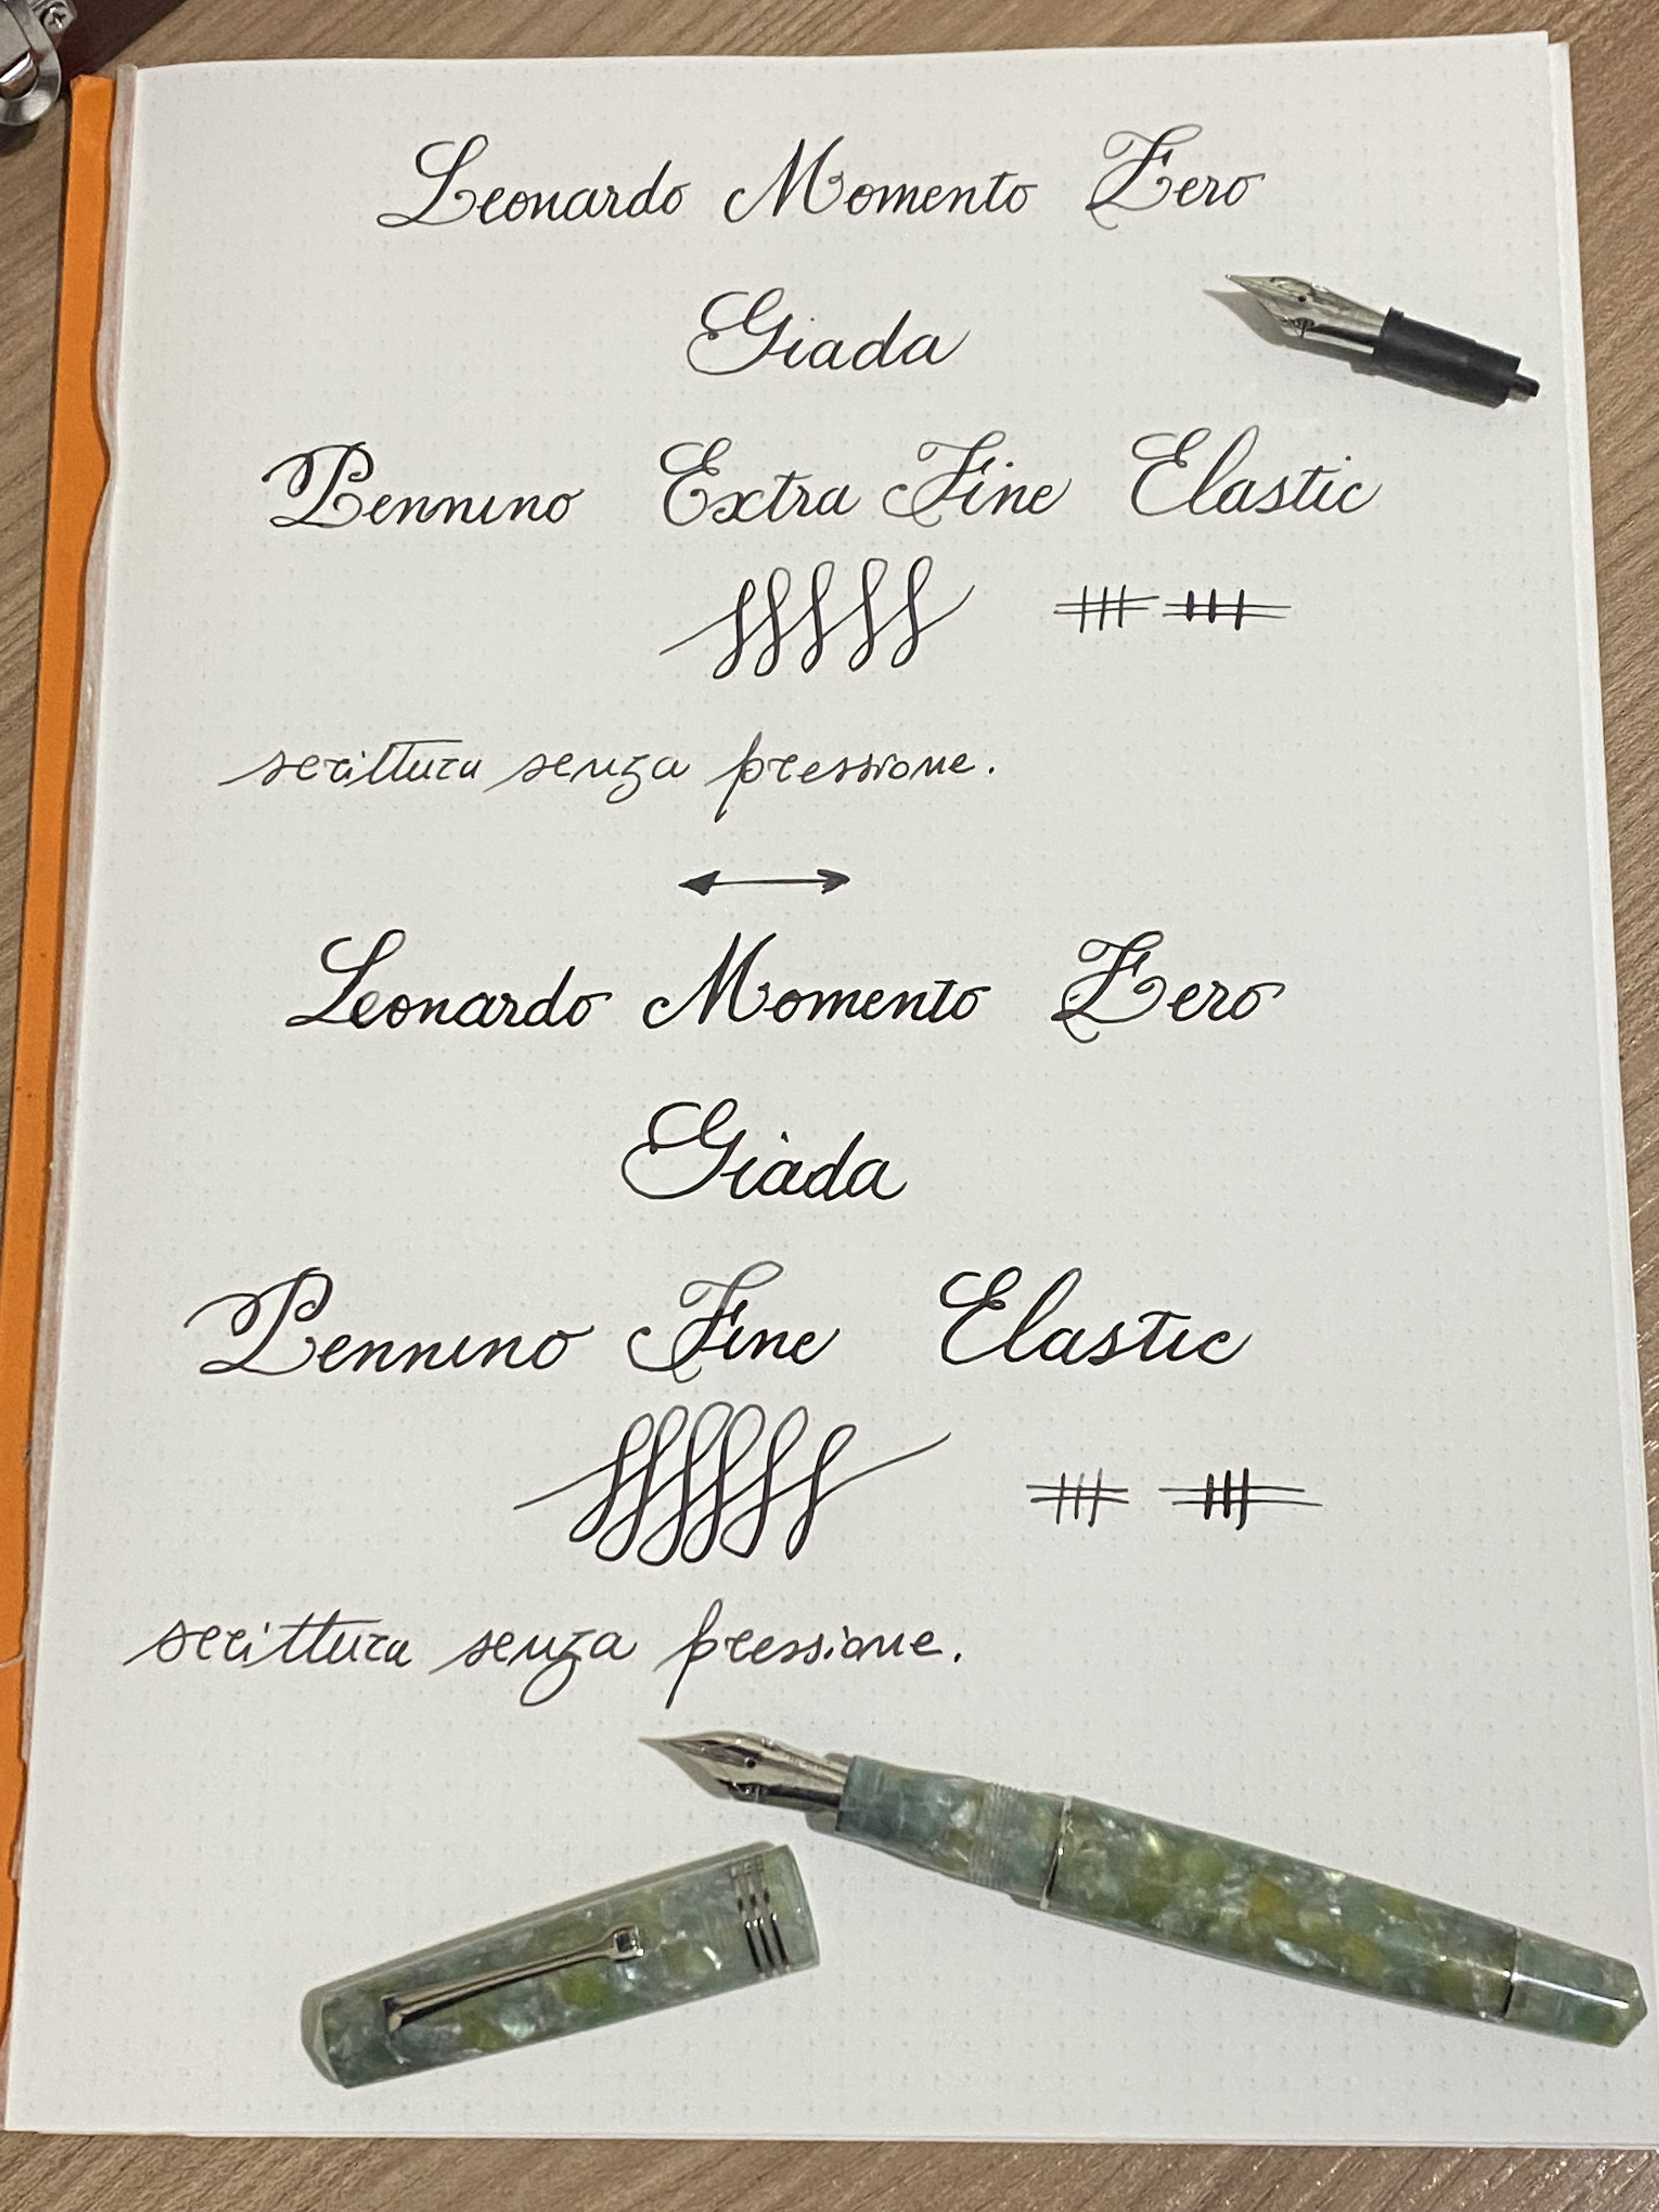 Leonardo Momento Zero
Giada
Pennino Extra Fine Elastic
scrittura senza pressione.
Leonardo Momento Zero
Giada
Pennino Fine Elastic
scrittura senza pressione.